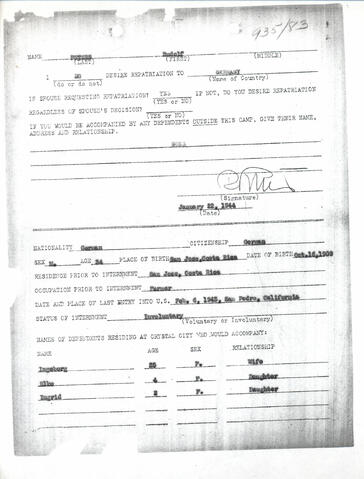 935/83
NAME Rudolf
(LAST) (FIRST) (MIDDLE)
I DO DESIRE REPATRIATION TO GERMANY
(do or do not) (Name of Country)
IS SPOUSE REQUESTING REPATRIATION? YES IF NOT, DO YOU DESIRE REPATRIATION
(YES or NO)
REGARDLESS OF SPOUSE'S DECISION?
(YES or NO)
IF YOU WOULD BE ACCOMPANIED BY ANY DEPENDENTS OUTSIDE THIS CAMP, GIVE THEIR NAME,
ADDRESS AND RELATIONSHIP.
NONE
(Signature)
January 22, 1944
(Date)
NATIONALITY German CITIZENSHIP German
SEX M. AGE 34 PLACE OF BIRTH San Jose, Costa Rica DATE OF BIRTH Oct.16,1909
RESIDENCE PRIOR TO INTERNMENT San Jose, Costa Rica
OCCUPATION PRIOR TO INTERNMENT Farmer
DATE AND PLACE OF LAST ENTRY INTO U.S. Feb. 6, 1943, San Pedro, California
STATUS OF INTERNMENT Involuntary
(Voluntary or Involuntary)
NAMES OF DEPENDENTS RESIDING AT CRYSTAL CITY WHO WOULD ACCOMPANY:
NAME AGE SEX RELATIONSHIP
Ingeborg 25 F. Wife
Elke 4 F. Daughter
Ingrid 2 F. Daughter